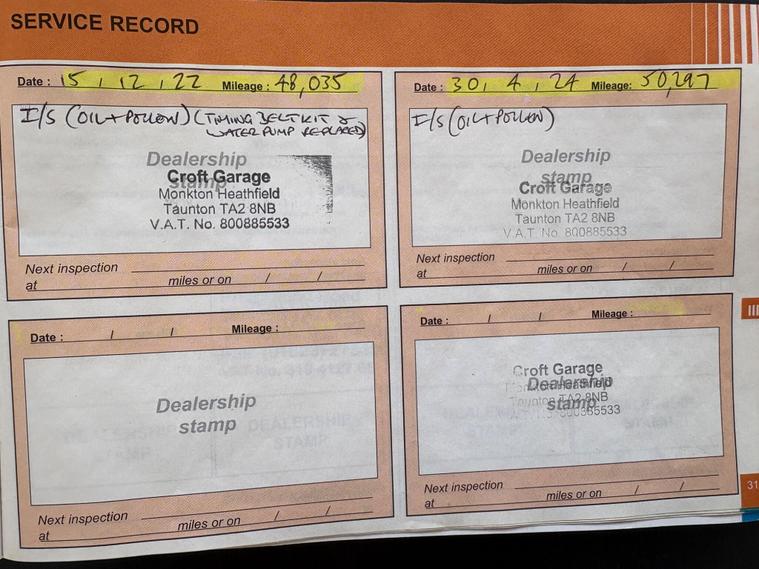 SERVICE RECORD
Date : 15 , 12 , 22 Mileage : 48,035
I/S (OIL + POLLEN) (TIMING BELT KIT &
WATER PUMP REPLACED)
Dealership
stamp
Croft Garage
Monkton Heathfield
Taunton TA2 8NB
V.A.T. No. 800885533
Next inspection
at miles or on / /
Date : 30 , 4 , 24 Mileage: 50,297
I/S (OIL + POLLEN)
Dealership
stamp
Croft Garage
Monkton Heathfield
Taunton TA2 8NB
V.A.T. No. 800885533
Next inspection
at miles or on / /
Date : / / Mileage :
Dealership
stamp
Next inspection
at miles or on / /
Date : / / Mileage :
Croft Garage
Dealership
Taunton TA2 8NB
stamp
Next inspection
at miles or on / /
31